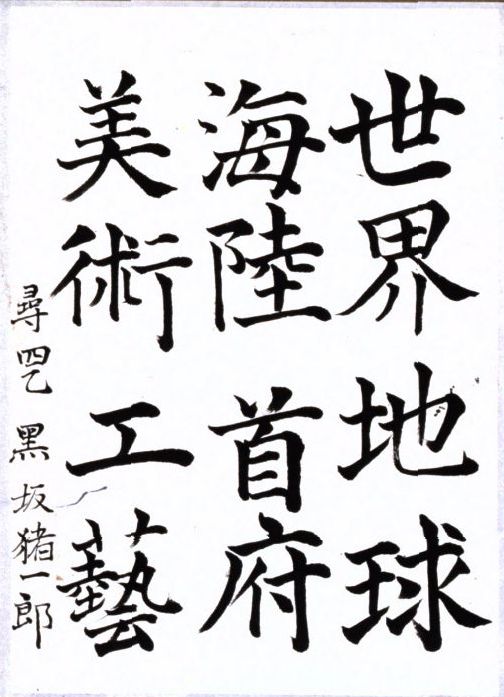 世界地球
海陸首府
美術工藝
尋四乙 黒坂猪一郎